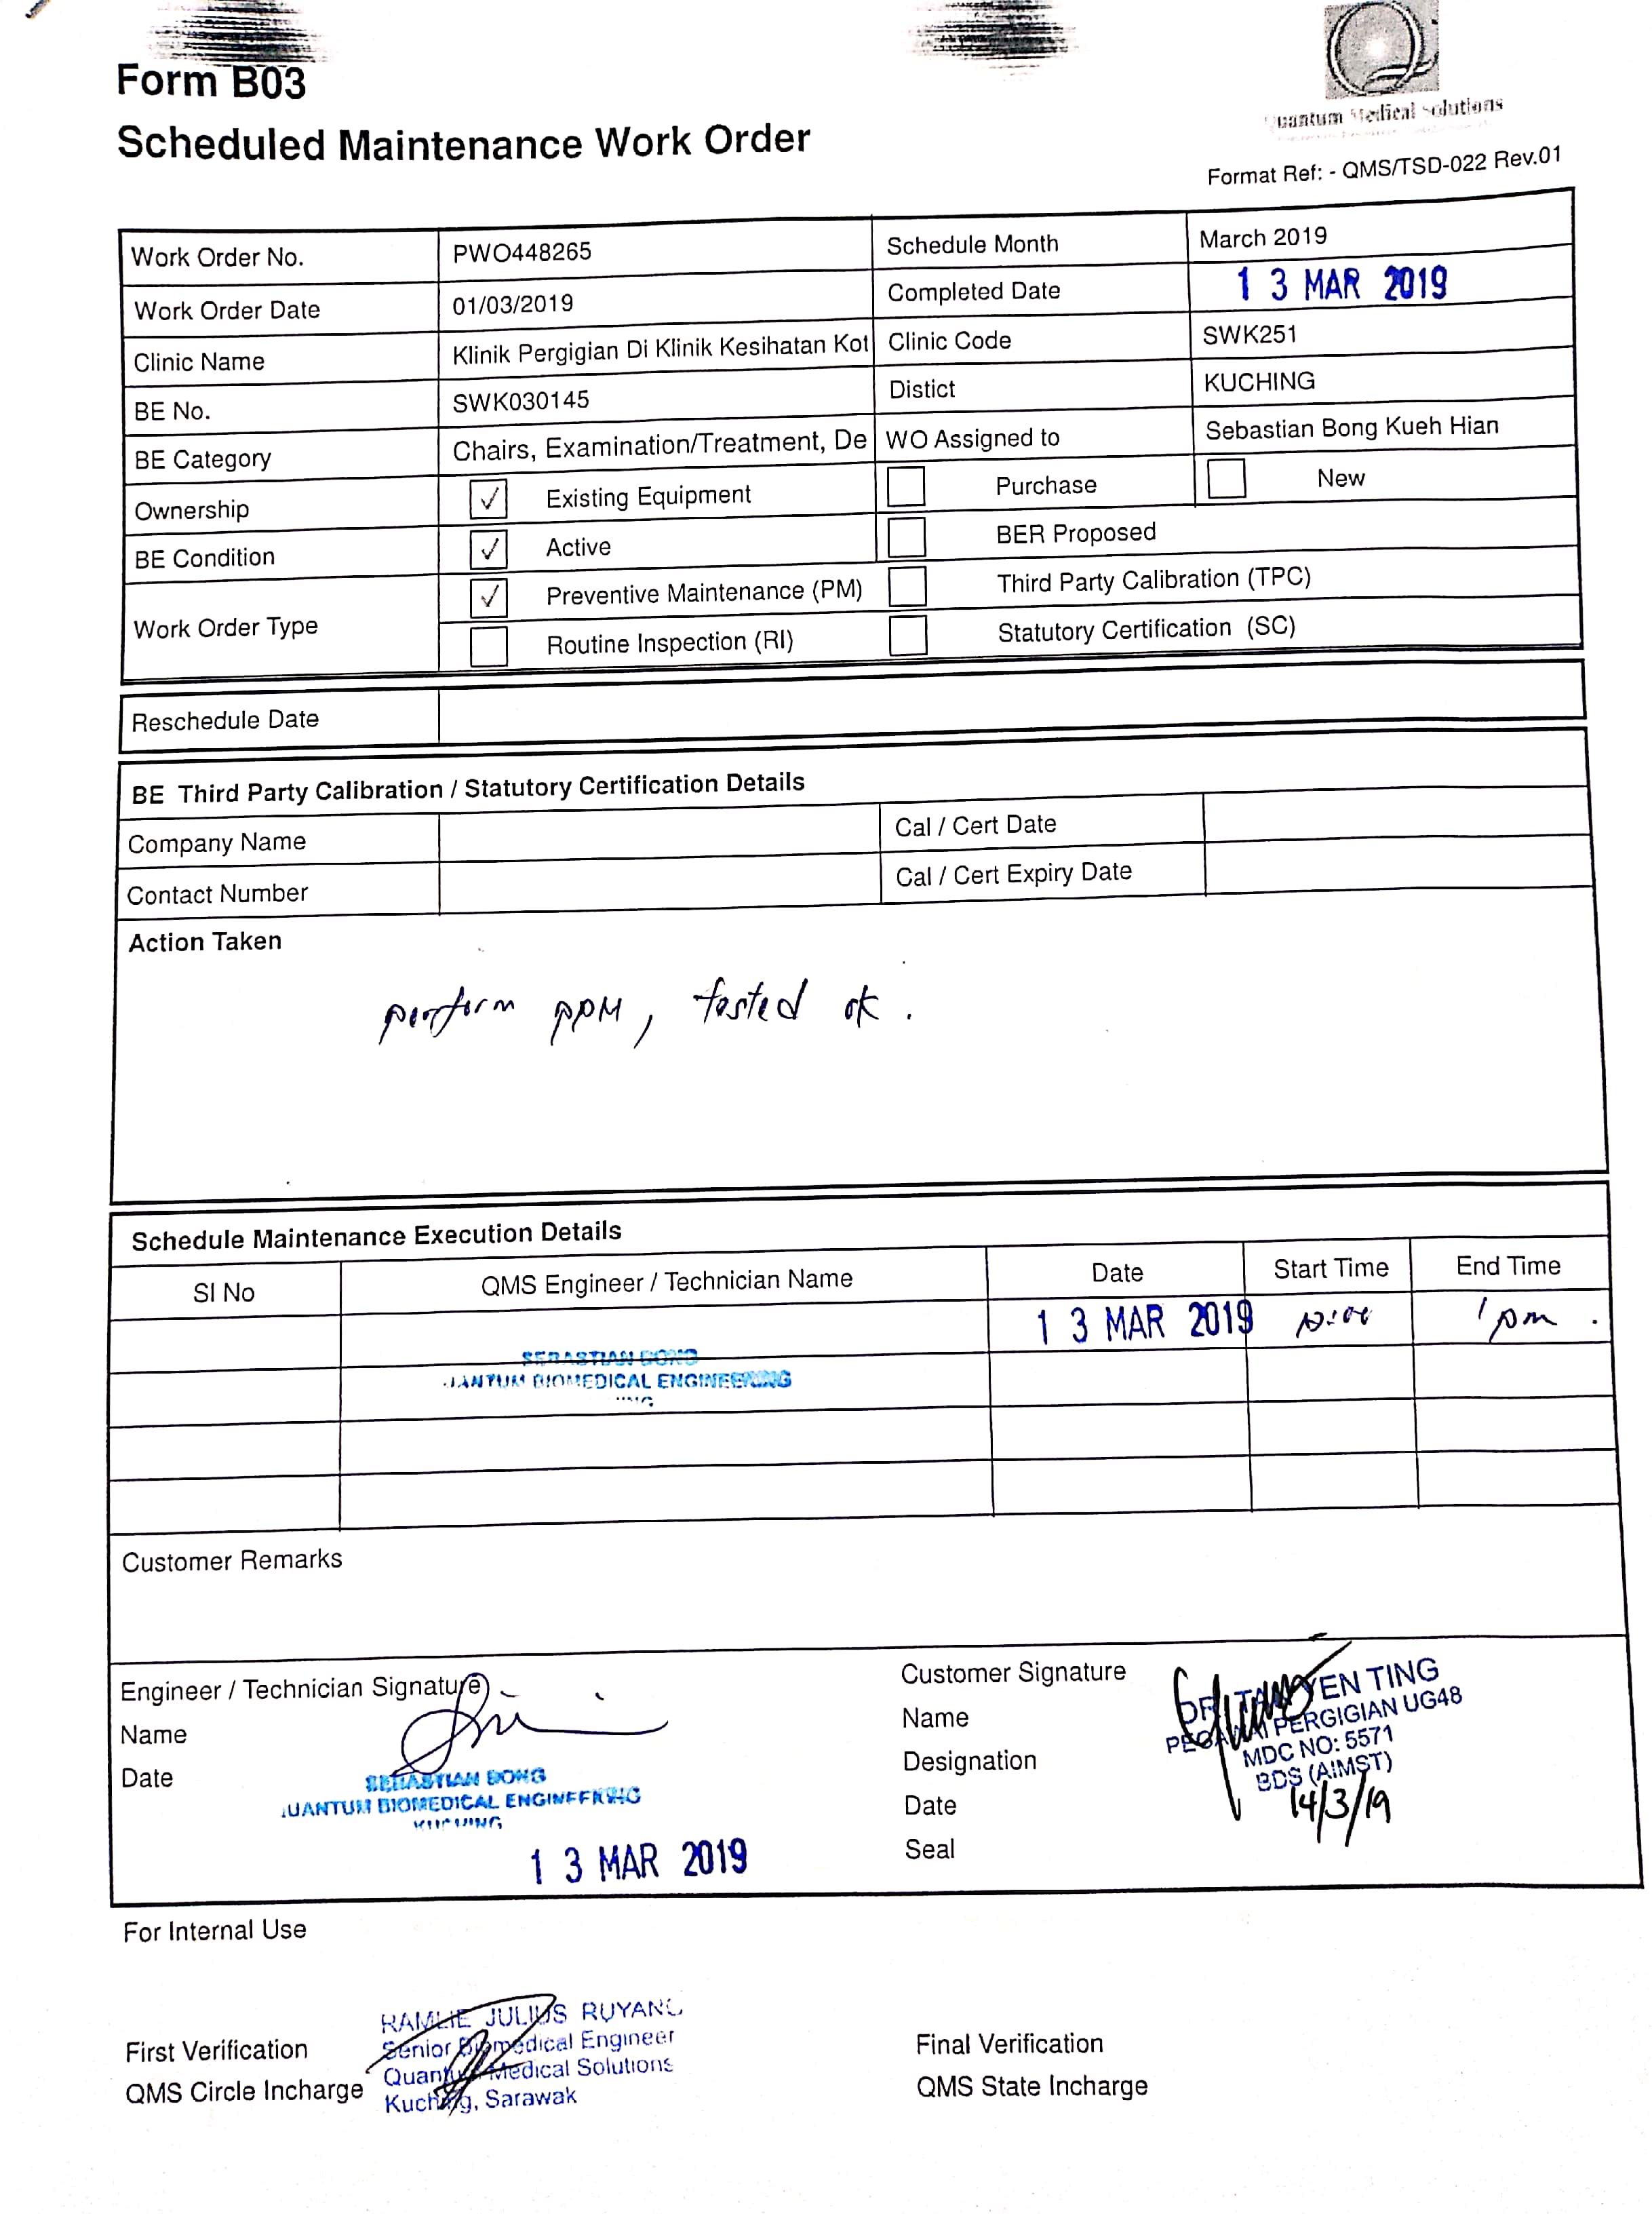 Form B03
Scheduled Maintenance Work Order
Medical Solutions
Format Ref: - QMS/TSD-022 Rev.01
Work Order No. PWO448265 Schedule Month March 2019
Work Order Date 01/03/2019 Completed Date 13 MAR 2019
Clinic Name Klinik Pergigian Di Klinik Kesihatan Kot Clinic Code SWK251
BE No. SWK030145 Distict KUCHING
BE Category Chairs, Examination/Treatment, De WO Assigned to Sebastian Bong Kueh Hian
Ownership ✓ Existing Equipment Purchase New
BE Condition ✓ Active BER Proposed
Work Order Type ✓ Preventive Maintenance (PM) Third Party Calibration (TPC)
Routine Inspection (RI) Statutory Certification (SC)
Reschedule Date
BE Third Party Calibration / Statutory Certification Details
Company Name Cal / Cert Date
Contact Number Cal / Cert Expiry Date
Action Taken
perform PPM, tested ok.
Schedule Maintenance Execution Details
SI No QMS Engineer / Technician Name Date Start Time End Time
13 MAR 2019 1pm.
SEBASTIAN BONG
BIOMEDICAL ENGINEERING
Customer Remarks
Engineer / Technician Signature
Name
Date
SEBASTIAN BONG
UANTUM BIOMEDICAL ENGINEERING
KUCHING
13 MAR 2019
Customer Signature
Name
Designation
Date
Seal
YEN TING
PERGIGIAN UG48
MDC NO: 5571
BDS (AIMST)
14/3/19
For Internal Use
First Verification
QMS Circle Incharge
RAMLIE JULIUS RUYANG
Senior Biomedical Engineer
Quantum Medical Solutions
Kuching, Sarawak
Final Verification
QMS State Incharge